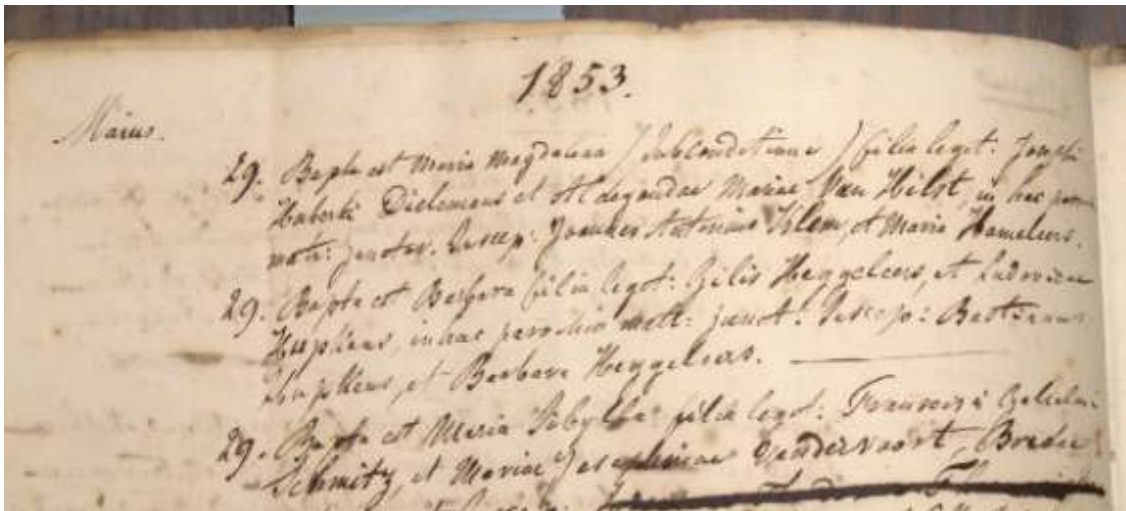 1853.
Maius.
29. Bapta est Maria Magdalena / sub conditione / filia legit: Josephi
Huberti Dielemans et Aldegondae Mariae Van Hilst, in hac
matr: junctor. Suscep: Joannes Antonius Klem, et Maria Hamelers.
29. Bapta est Barbara filia legit: Gilis Heggeleers, et Ludovicae
in hac parochia matr: junct: Suscep: Bastianus
et Barbara Heggeleers.
29. Bapta est Maria Sibylla filia legit: Francisci
Schmitz, et Mariae Josephinae Vandervoort, Bredae